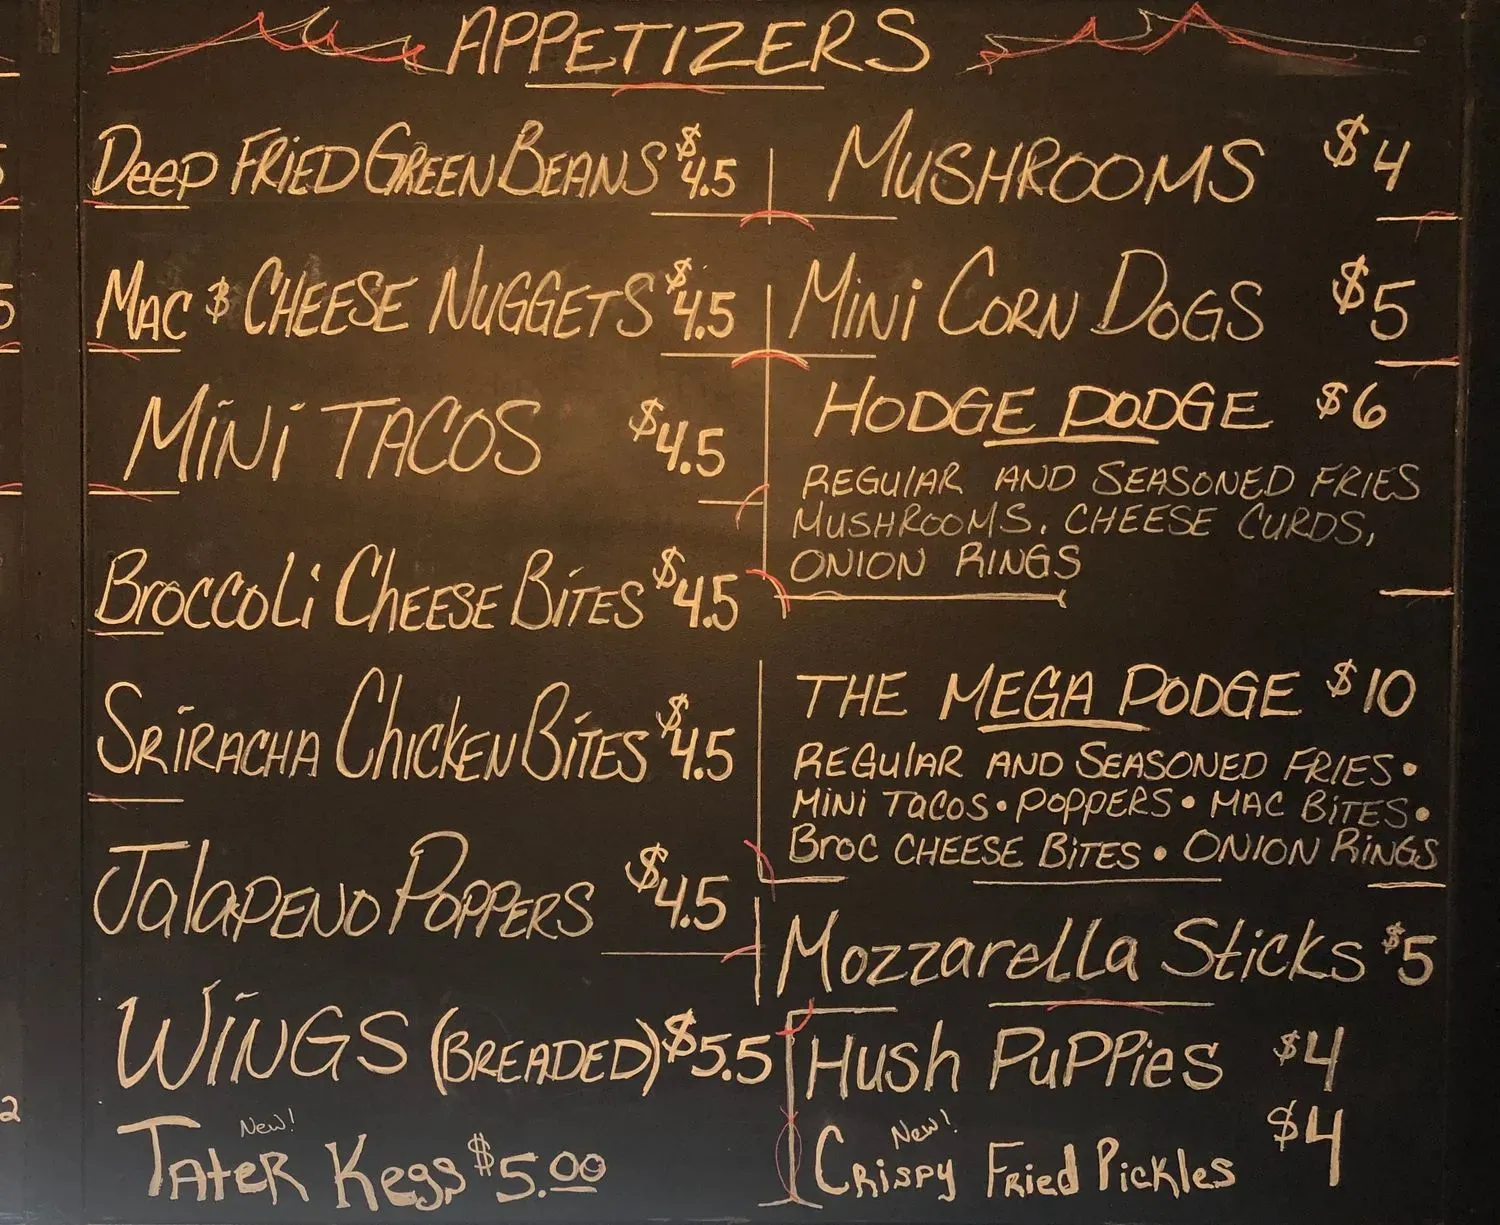 APPETIZERS
Deep FRiED GREEN BEANS $4.5
MAC & CHEESE NUGGETS $4.5
MiNi TACOS $4.5
BroccoLi CHEESE BiTES $4.5
SRiRACHA CHiCKEN BiTES $4.5
JalaPENO POPPERS $4.5
WiNGS (BREADED) $5.5
New!
TAteR Kegs $5.00
MUSHROOMS $4
MiNi CORN DOGS $5
HODGE PODGE $6
REGUlAR AND SEASONED FRIES
MUSHROOMS. CHEESE CURDS,
ONION RINGS
THE MEGA PODGE $10
REGUlAR AND SEASONED FRIES •
MiNi TACOS • POPPERS • MAC BiTES •
Broc CHEESE BiTES • ONION RiNGS
Mozzarella Sticks $5
Hush PuPPies $4
New!
Crispy Fried Pickles $4